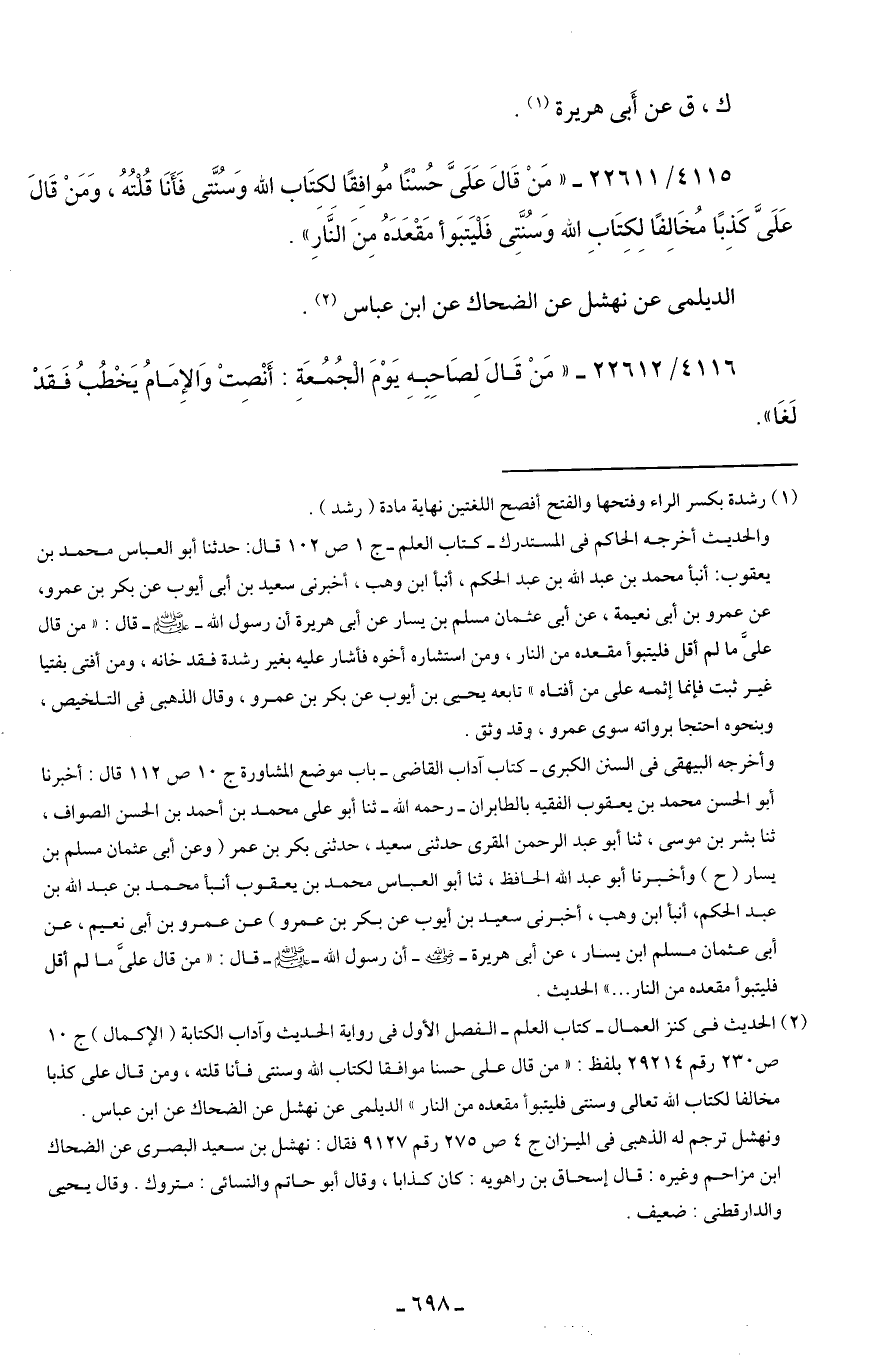 ك ، ق عن أَبى هريرة (١) .
٤١١٥/ ٢٢٦١١ ـ « مَنْ قَالَ عَلَىَّ حُسْنًا مُوافِقًا لِكتَابِ الله وَسُنَّتى فَأَنَا قُلْتُهُ ، وَمَنْ قَالَ
عَلَىَّ كَذِبًا مُخَالِفًا لِكِتَابِ الله وَسُنَّتِى فَلْيَتَبوأ مَقْعَدَهُ مِنَ النَّارِ» .
الديلمى عن نهشل عن الضحاك عن ابن عباس (٢) .
٤١١٦/ ٢٢٦١٢ ـ « مَنْ قَـالَ لِصَاحِبِـهِ يَوْمَ الْجُمُـعَةِ : أَنْصِتْ وَالإِمَـامُ يَخْطُبُ فَـقَدْ
لَغَا».
(١) رشدة بكسر الراء وفتحها والفتح أفصح اللغتين نهاية مادة ( رشد ) .
والحديث أخرجـه الحاكم فى المستدرك ـ كـتاب العلم ـ ج ١ ص ١٠٢ قـال: حدثنا أبو العـباس محـمد بن
يعقوب: أنبأ محمد بن عبد الله بن عبد الحكم ، أنبأ ابن وهب ، أخبرنى سعيد بن أبى أيوب عن بكر بن عمرو،
عن عمرو بن أبى نعيمة ، عن أبى عثـمان مسلم بن يسار عن أبى هريرة أن رسول الله ـ ﷺ ـ قال : « من قال
علىَّ ما لم أقل فليتبوأ مقـعده من النار ، ومن استشاره أخوه فأشار عليه بغير رشدة فـقد خانه ، ومن أفتى بفتيا
غيـر ثبت فإنما إثمـه على من أفتـاه » تابعه يحيـى بن أيوب عن بكر بن عمـرو ، وقال الذهبى فى التـلخيص ،
وبنحوه احتجا برواته سوى عمرو ، وقد وثق .
وأخرجه البيهقى فى السنن الكبرى ـ كتاب آداب القاضى ـ باب موضع المشاورة ج ١٠ ص ١١٢ قال : أخبرنا
أبو الحسن محمد بن يعـقوب الفقيه بالطابران ـ رحمه الله ـ ثنا أبو على محمـد بن أحمد بن الحسن الصواف ،
ثنا بشر بن موسى ، ثنا أبو عبد الرحمن المقرى حدثنى سعيد ، حدثنى بكر بن عمر ( وعن أبى عثمان مسلم بن
يسار ( ح ) وأخـبـرنا أبو عبد الله الحـافظ ، ثنا أبو العبـاس محمـد بن يعـقـوب أنـبأ محـمـد بن عبـد الله بن
عبـد الحكم، أنبأ ابن وهب ، أخـبرنى سعيـد بن أيوب عن بكـر بن عمرو ) عـن عمـرو بن أبى نعيم ، عـن
أبى عـثمان مسلم ابن يسـار ، عن أبى هريرة ـ رضي الله عنه ـ أن رسول الله ـ ﷺ ـ قـال : « من قال علىَّ مـا لم أقل
فليتبوأ مقعده من النار...» الحديث .
(٢) الحديث فـى كنز العمـال ـ كتاب العلم ـ الـفصل الأول فى رواية الحـديث وآداب الكتابة ( الإكـمال ) ج ١٠
ص ٢٣٠ رقم ٢٩٢١٤ بلفظ : « من قال علـى حسنا موافقـا لكتاب الله وسنتى فـأنا قلته ، ومن قـال على كذبا
مخالفا لكتاب الله تعالى وسنتى فليتبوأ مقعده من النار » الديلمى عن نهشل عن الضحاك عن ابن عباس .
ونهشل ترجم له الذهبى فى الميـزان ج ٤ ص ٢٧٥ رقم ٩١٢٧ فقال : نهشل بن سـعيد البصـرى عن الضحاك
ابن مزاحـم وغيره : قـال إسحـاق بن راهويه : كان كـذابا ، وقال أبو حـاتم والنسائى : مـتروك . وقال يـحيى
والدارقطنى : ضعيف .
ـ ٦٩٨ ـ